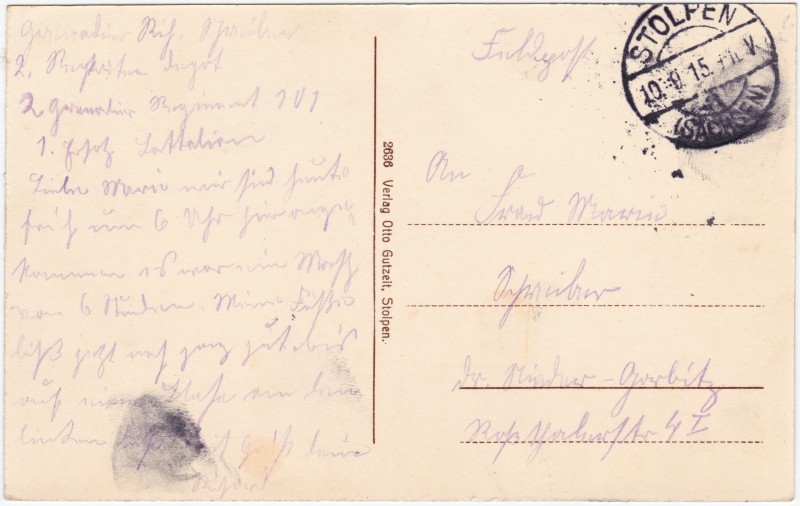 Grenadier Rich. Schreiber
2. Rekruten depot
2 Grenadier Regiment 101
1. Ersatz Battalion
Liebe Marie wir sind heute
früh um 6 Uhr hier ange
kommen es war ein Marsch
von 6 Stunden. Meine Füße
bis jetzt noch ganz gut bis
auf eine Blase an dem
linken
Richard
2636 Verlag Otto Gutzeit, Stolpen.
Feldpost
STOLPEN
10.9.15.
(SACHSEN)
An
Frau Marie
Schreiber
dr. Nieder-Gorbitz
Rosthalerstr 4 I